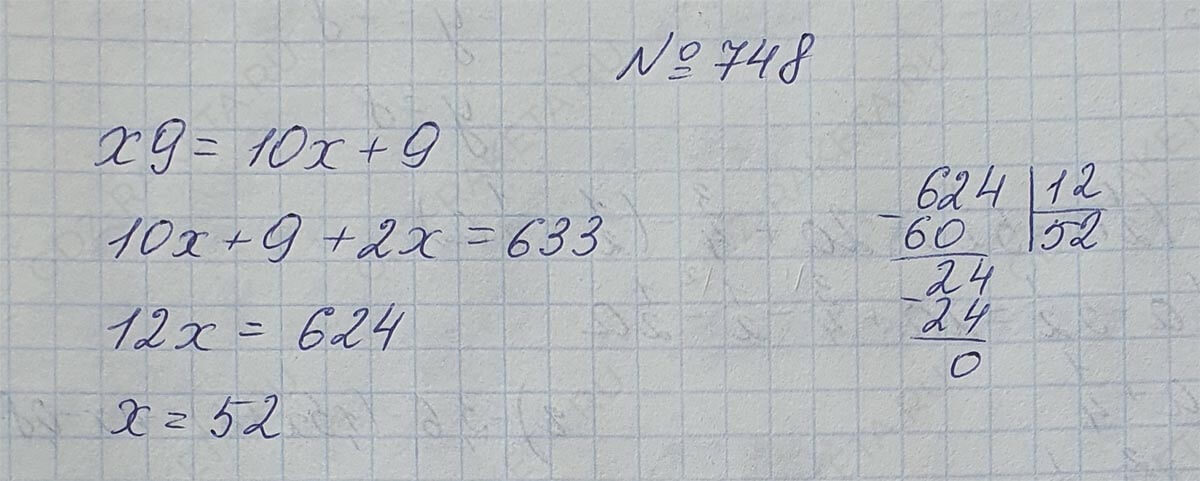 № 748
x9 = 10x + 9
10x + 9 + 2x = 633
12x = 624
x = 52
624 | 12
- 60 | 52
24
- 24
0